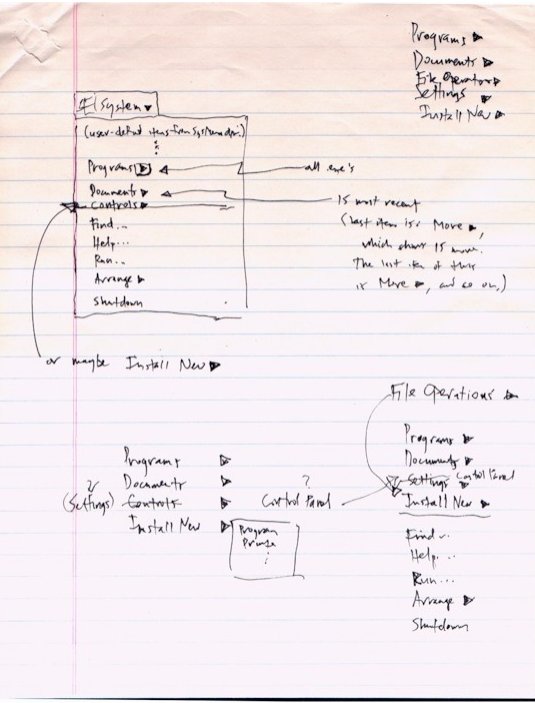 Programs ▶
Documents ▶
File Operations ▶
Settings ▶
Install New ▶
System ▾
(user-defined items from System dir.)
Programs ▶
all .exe's
Documents ▶
Controls ▶
15 most recent
(last item is: More ▶,
which shows 15 more.
The last item of this
is More ▶, and so on.)
Find...
Help...
Run...
Arrange ▶
Shutdown
or maybe Install New ▶
File Operations ▶
Programs ▶
Documents ▶
Settings ▶ Control Panel
Install New ▶
Find...
Help...
Run...
Arrange ▶
Shutdown
Programs ▷
Documents ▷
?
(Settings) Controls ▷
Install New ▷
Program
Printer
?
Control Panel